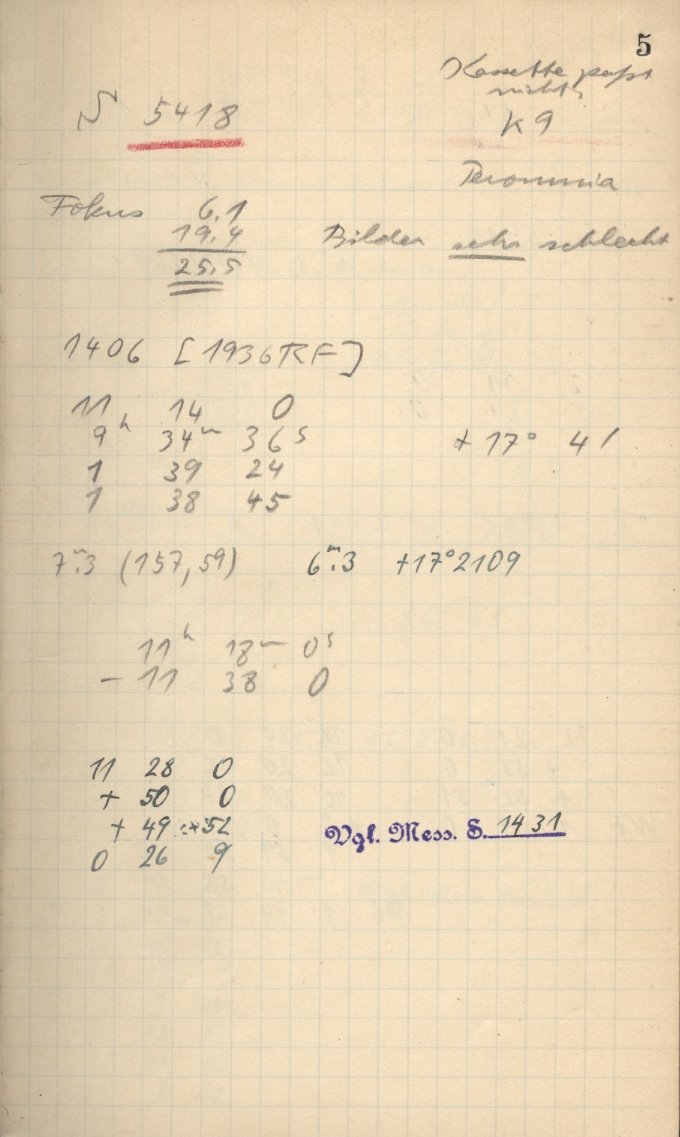 5
Kassette paßt
nicht
S 5418
K 9
Peromnia
Fokus 6.1
19.4
25.5
Bilder sehr schlecht
1406 [1936 RF]
11 14 0
9ʰ 34ᵐ 36ˢ + 17° 4'
1 39 24
1 38 45
7ᵐ.3 (157, 59) 6ᵐ.3 +17°2109
11ʰ 18ᵐ 0ˢ
– 11 38 0
11 28 0
+ 50 0
+ 49 52
0 26 9
Vgl. Mess. S. 1431